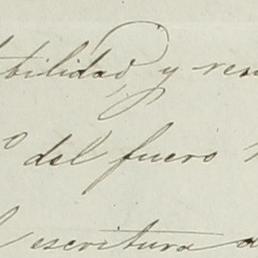 tbilidad, y ren
o del fuero
l escritura a